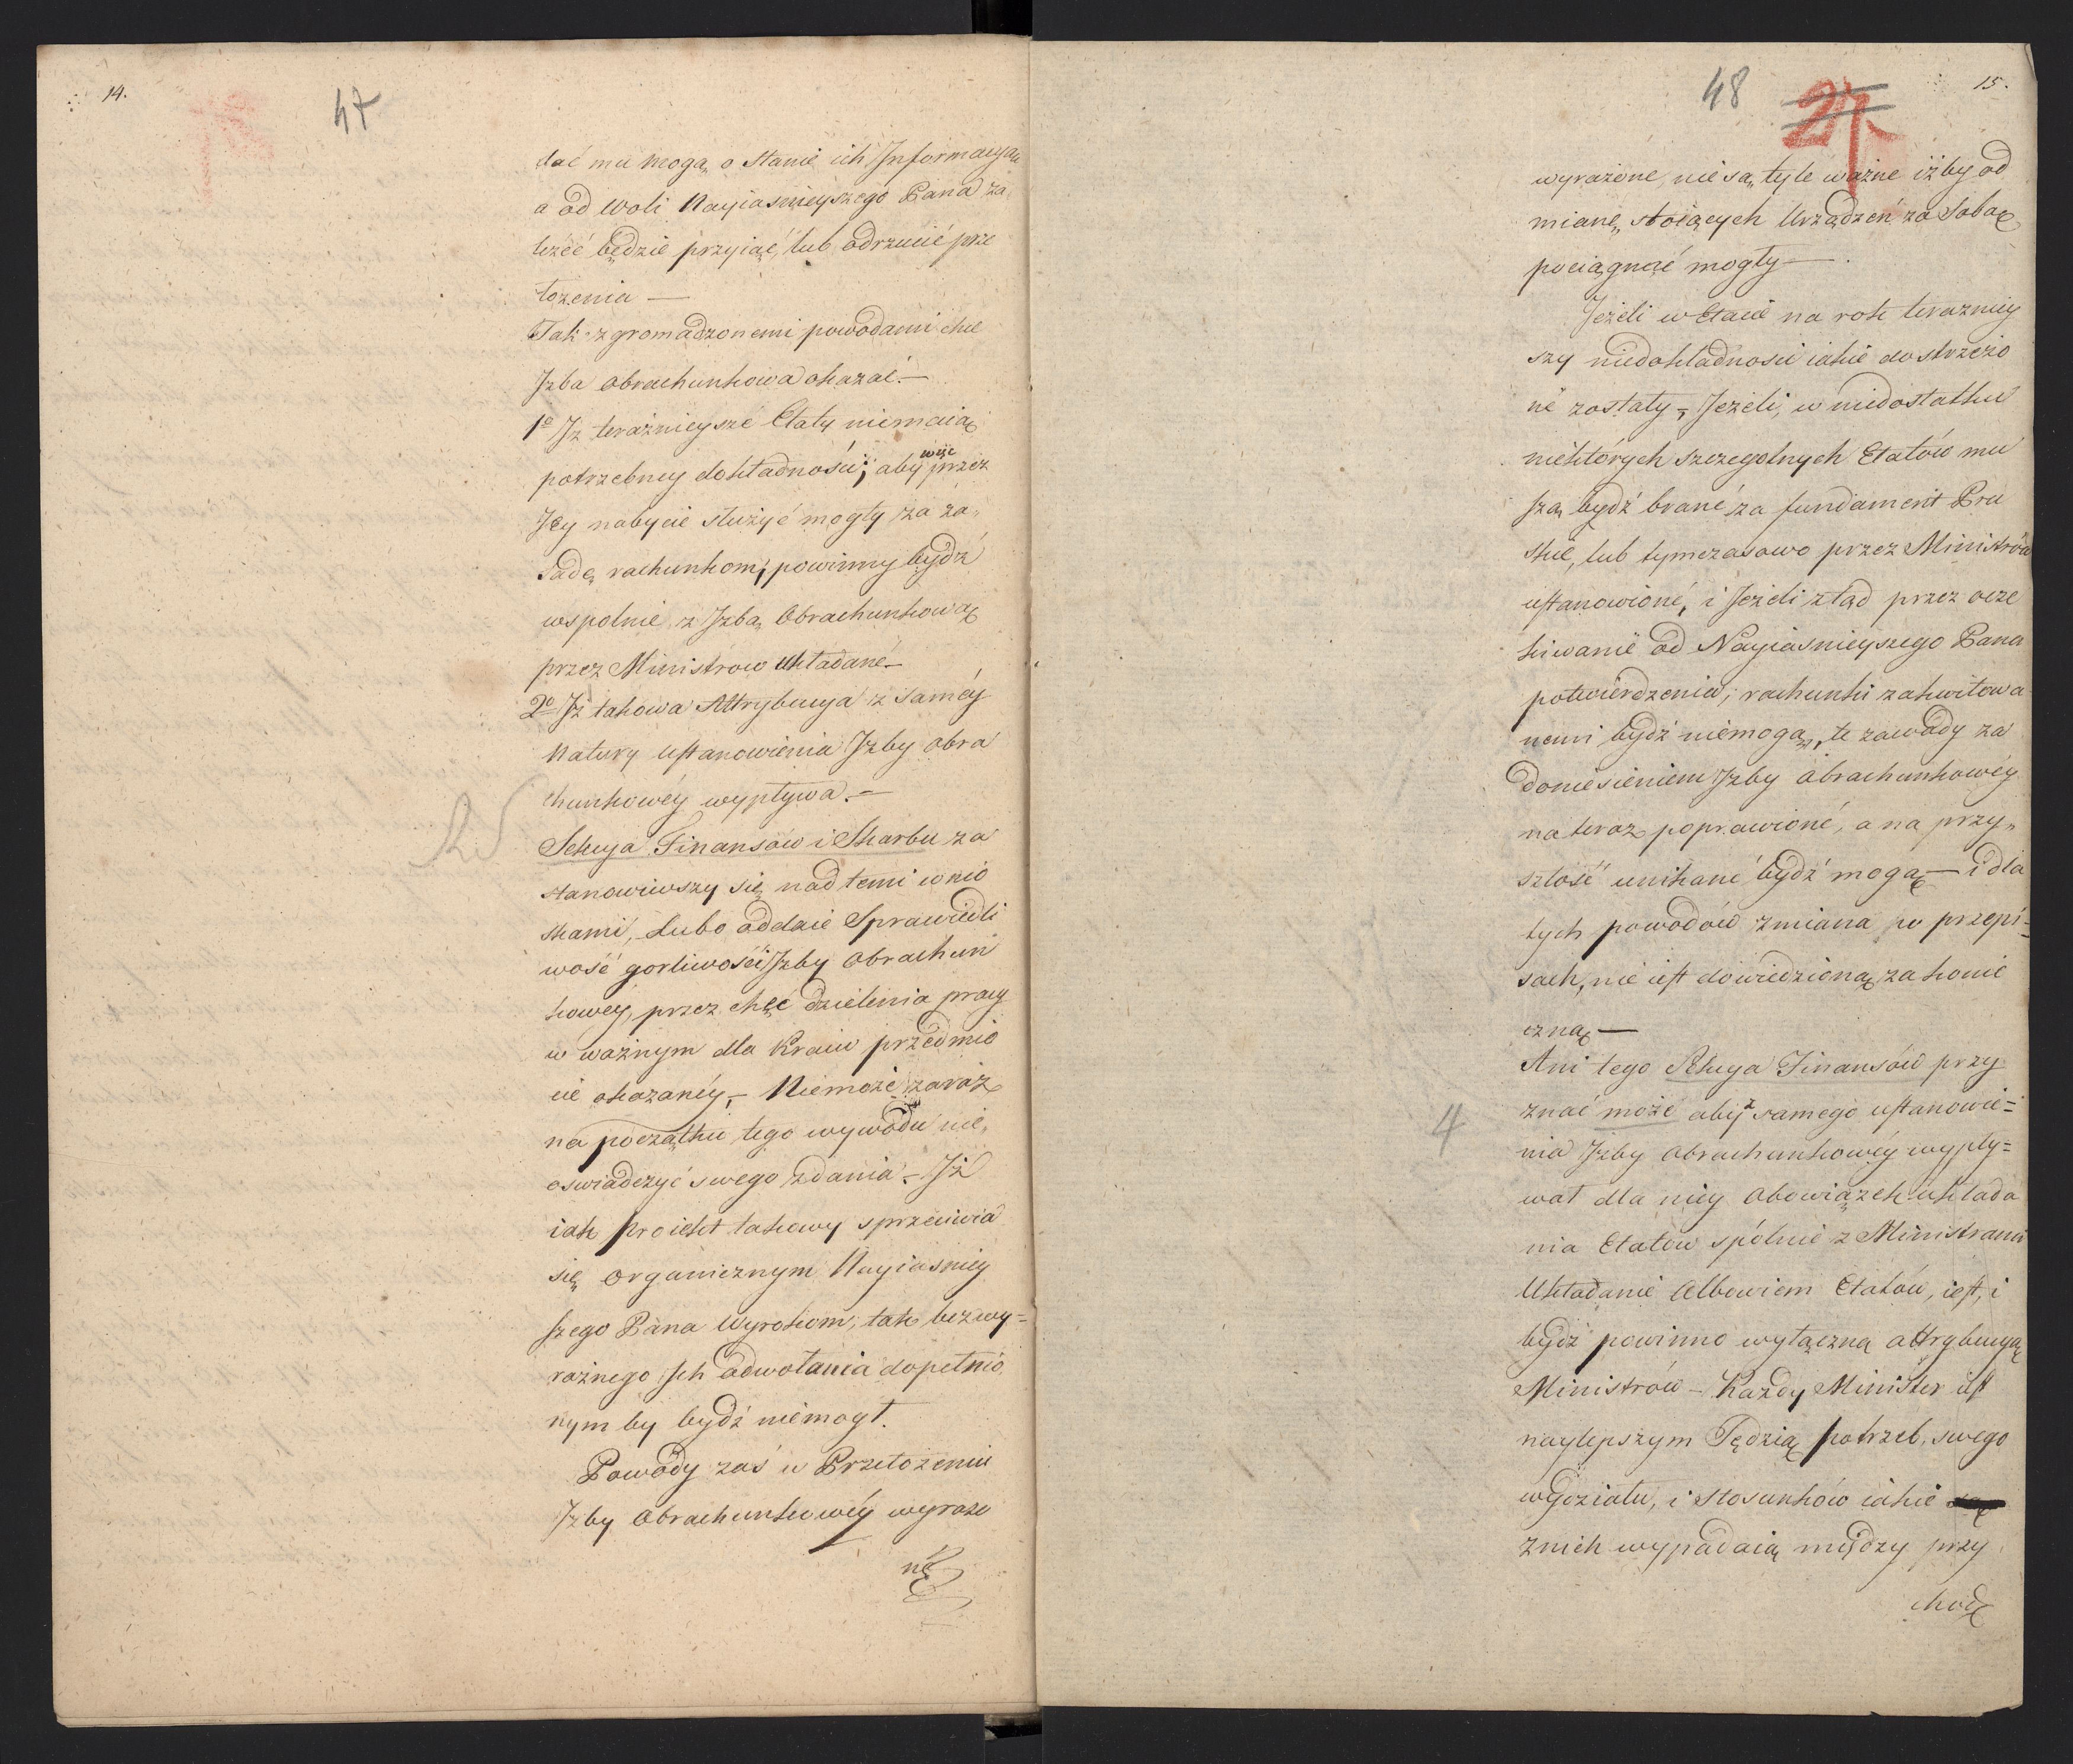 14.
47
dać mu mogą o stanie ich Informacyą
a od woli Nayiasnieyszego Pana za
leżeć będzie przyiąć, lub odrzucić prze
łożenia —
Tak zgromadzonemi powodami chce
Izba Obrachunkowa okazać. —
1o Iż teraźnieysze Etaty niemaią
potrzebney dokładności; aby więc przez
Jey nabycie służyć mogły za za„
sadę rachunkom, powinny bydź
wspolnie z Izbą Obrachunkową
przez Ministrow układane. —
2o Iż takowa Attrybucya z saméy
Natury Ustanowienia Izby obra
chunkowéy wypływa. —
Sekcya Finansów i Skarbu za
stanowiwszy się nad temi wnio
skami, Lubo oddaie Sprawiedli
wość gorliwości Izby Obrachun
kowey, przez chęć dzielenia pracy
w ważnym dla Kraiu przedmio
cie okazanéy, — Niemoże zaraz
na początku tego wywodu nie„
oswiadczyć swego zdania. — Iż
iak Proiekt takowy sprzeciwia
się Organicznym Nayiasniey
szego Pana Wyrokom; tak bez wy=
raźnego Ich odwołania dopełnio
nym by bydź niemogł.
Powody zaś w Przełożeniu
Izby Obrachunkowéy wyrażo
né
48
27
15.
wyrażone, nie są tyle ważne iżby od
mianę, stoiących Urządzeń za Sobą
pociągnąć mogły —.
Jeżeli w Etacie na rok terazniey
szy niedokładnosci iakie dostrzeżo
né zostały, Jeżeli, w niedostatku
niektórych szczegolnych Etatów mu
szą bydź brané za fundament Pru
skie, lub tymczasowo przez Ministrów
ustanowioné, i Jeżeli ztąd przez ocze
kiwanie od Nayiasnieyszego Pana
potwierdzenia, rachunki zakwitowa
nemi bydź niemogą, te zawady za
doniesieniem Izby obrachunkowéy
na teraz poprawioné, a na przy„
szłość unikané bydź mogą — i dla
tych powodów zmiana w przepi=
sach, nie iest dowiedzioną za konie
czną —
Ani tego Sekcya Finansów przy
znać może aby z samego ustanowie=
4
nia Izby Obrachunkowéy wypły=
wał dla niey Obowiązek układa
nia Etatów spólnie z Ministrami
Układanie Albowiem Etatów, iest, i
bydź powinno wyłączną attrybucyą
Ministrów — Każdy Minister iest
naylepszym Sędzią potrzeb, swego
wydziału, i stosunków iakie
z nich wypadaią między przy
chod